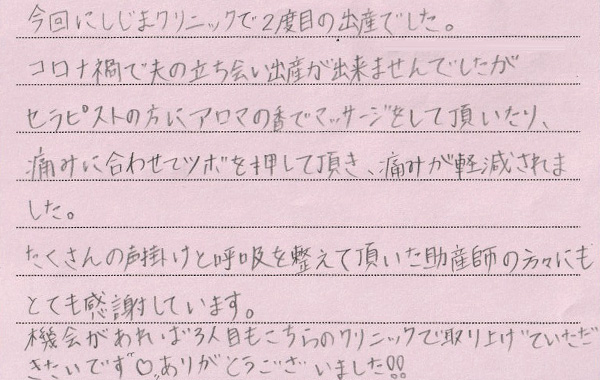 今回にしじまクリニックで2度目の出産でした。
コロナ禍で夫の立ち会い出産が出来ませんでしたが
セラピストの方にアロマの香でマッサージをして頂いたり、
痛みに合わせてツボを押して頂き、痛みが軽減されま
した。
たくさんの声掛けと呼吸を整えて頂いた助産師の方々にも
とても感謝しています。
機会があれば3人目もこちらのクリニックで取り上げていただ
きたいです♡、ありがとうございました!!